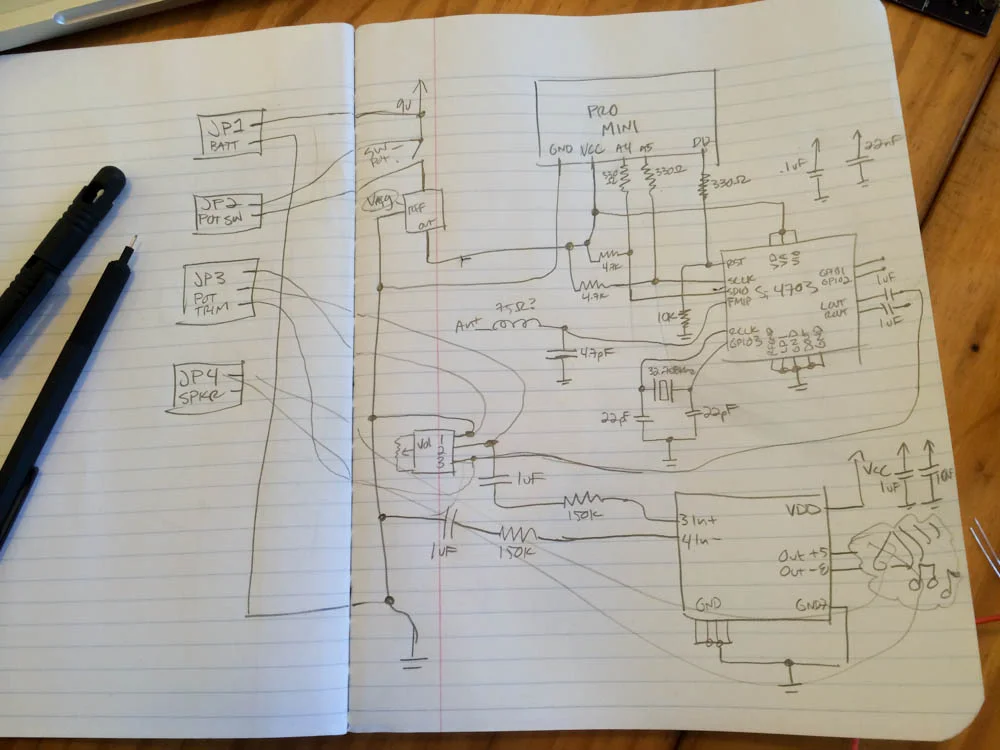 JP1
BATT
JP2
POT SW
JP3
POT
TRIM
JP4
SPKR
9V
SW
POT
REF
OUT
PRO
MINI
GND VCC A4 A5 D2
330Ω
330Ω
330Ω
.1uF
22nF
4.7K
4.7K
10K
RST
SCLK
SDIO
FMIP
RCLK
GPIO3
Si4703
GPIO1
GPIO2
LOUT
ROUT
1uF
1uF
75Ω?
Ant
47pF
32.768kHz
22pF
22pF
Vol
1
2
3
1uF
150K
1uF
150K
3 In+
4 In-
VDD
Out +5
Out -8
GND
GND7
Vcc
1uF
10uF